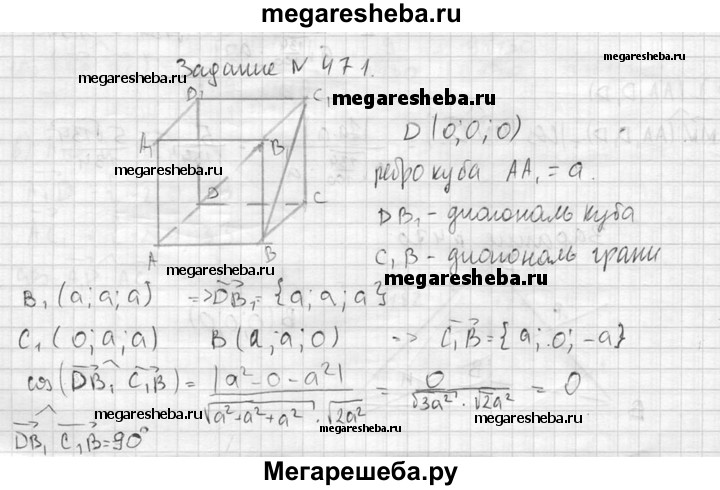 megaresheba.ru
Задание N 471.
megaresheba.ru
D₁
C₁
megaresheba.ru
A₁
B₁
D (0;0;0)
megaresheba.ru
ребро куба AA₁ = a.
D
C
DB₁ - диагональ куба
A
B
C₁B - диагональ грани
megaresheba.ru
megaresheba.ru
B₁ (a; a; a) => DB₁ = {a; a; a}
megaresheba.ru
C₁ (0; a; a) B (a; a; 0) => C₁B = {a; 0; -a}
megaresheba.ru
cos(DB₁ ^ C₁B) = |a² - 0 - a²| / √a²+a²+a² · √2a² = 0 / √3a² · √2a² = 0
megaresheba.ru
megaresheba.ru
megaresheba.ru
DB₁ ^ C₁B = 90°
Мегарешеба.ру